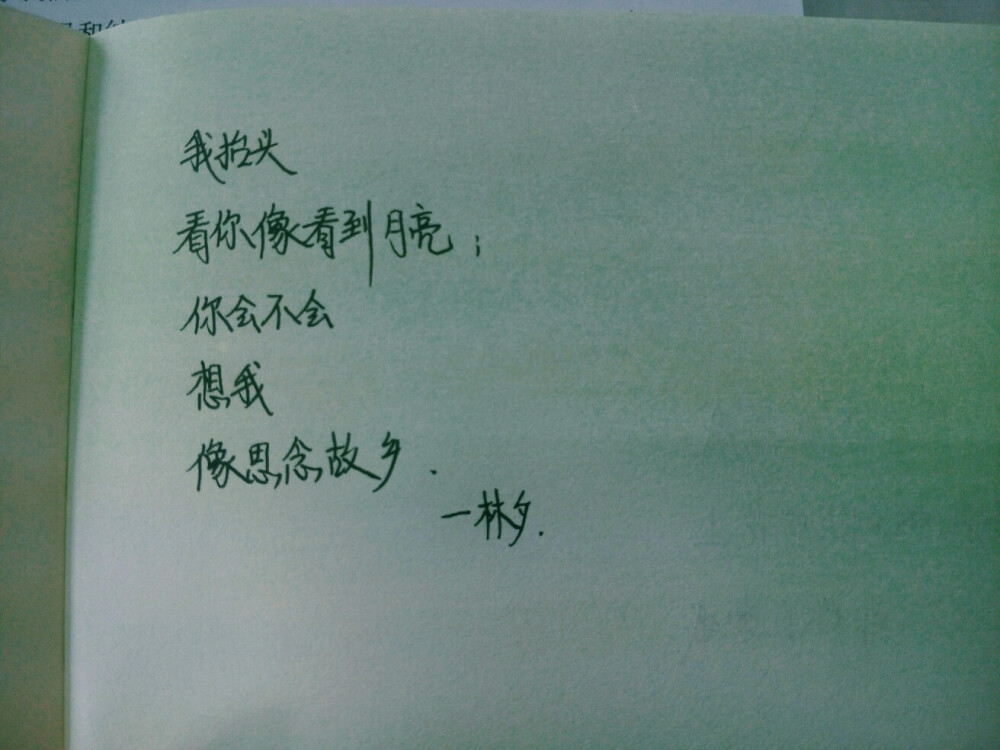 我抬头
看你像看到月亮；
你会不会
想我
像思念故乡.
—林夕.